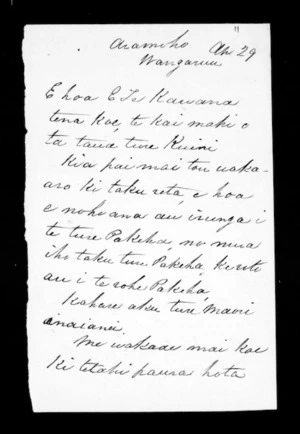 "
Aramoho Ap 29
Wanganui
E hoa E Te Kawana
tena koe, te kai mahi o
ta taua ture Kuini
Kia pai mai tou waka-
aro ki taku reta, e hoa
e noho ana au irunga i
te ture Pakeha, no mua
iho taku ture Pakeha, kei roto
au i te rohe Pakeha,
Kahore aku ture Maori
inaianei.
Me wakaae mai koe
ki tetahi paura hota